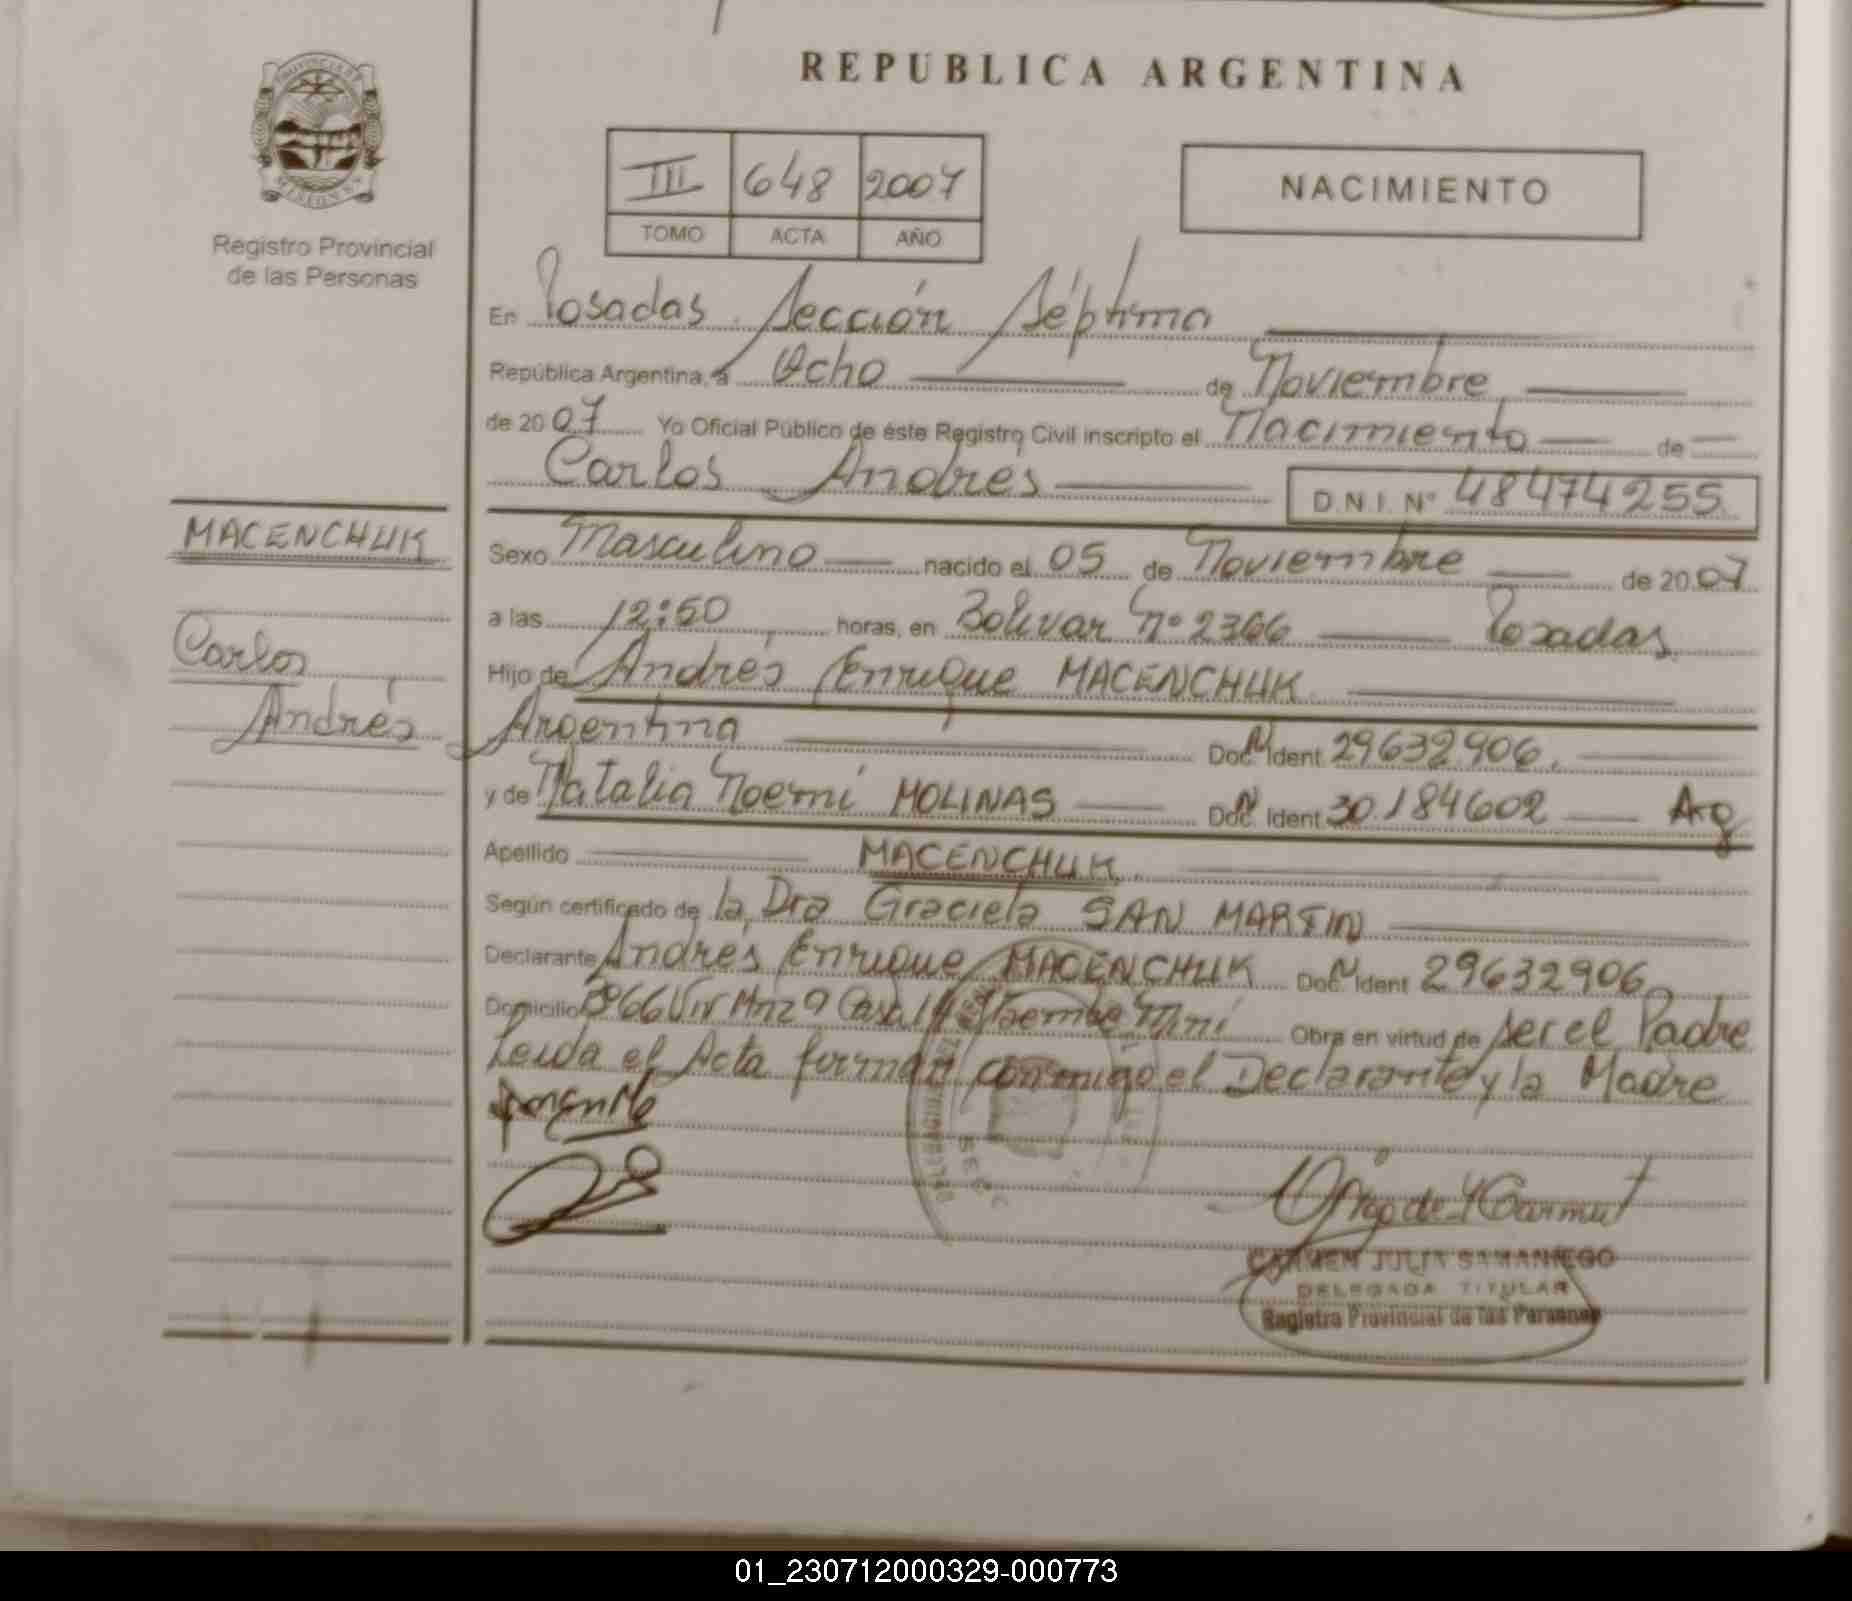 REPUBLICA ARGENTINA
PROVINCIA DE
MISIONES
Registro Provincial
de las Personas
III 648 2007
TOMO ACTA AÑO
NACIMIENTO
En Posadas Sección Séptima
República Argentina, a Ocho de Noviembre
de 2007 Yo Oficial Público de éste Registro Civil inscripto el Nacimiento de
Carlos Andrés D.N.I. Nº 48474255
MACENCHUK
Carlos
Andrés
Sexo Masculino nacido el 05 de Noviembre de 2007
a las 12:50 horas, en Bolívar Nº 2366 Posadas
Hijo de Andrés Enrique MACENCHUK
Argentina Doc. Ident. 29632906.
y de Natalia Noemí MOLINAS Doc. Ident. 30.184602 Arg
Apellido MACENCHUK
Según certificado de la Dra Graciela SAN MARTIN
Declarante Andrés Enrique MACENCHUK Doc. Ident 29632906
Domicilio Viv Mnz 9 Casa Miní Obra en virtud de ser el Padre
Leida el Acta forman conmigo el Declarante y la Madre
CARMEN JULIA SAMANIEGO
DELEGADA TITULAR
Registro Provincial de las Personas
01_230712000329-000773